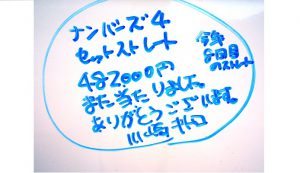 ナンバーズ4
セットストレート
482,000円
また当たりました。
ありがとうございます。
川崎
今年
8回目
のストレート